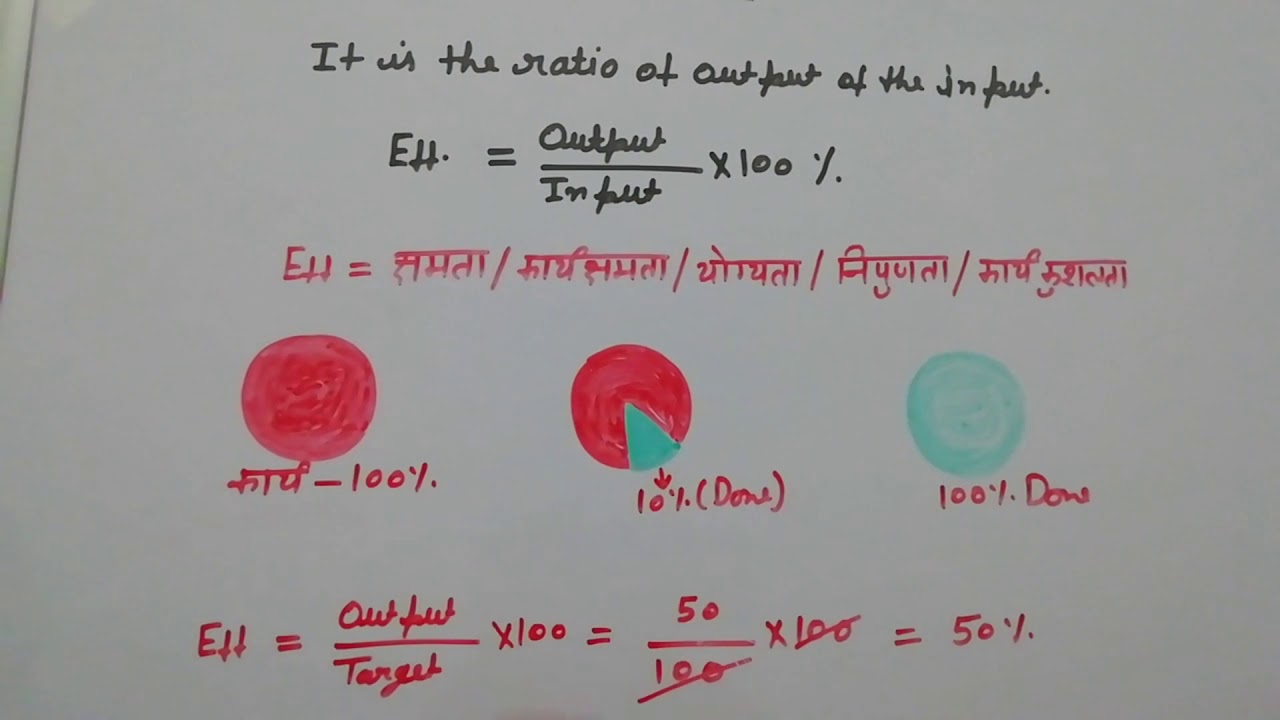 It is the ratio of output of the input.
Eff. = Output / Input × 100 %.
Eff = क्षमता / कार्यक्षमता / योग्यता / निपुणता / कार्य कुशलता
कार्य – 100%.
10% (Done)
100%. Done
Eff = Output / Target × 100 = 50 / 100 × 100 = 50%.